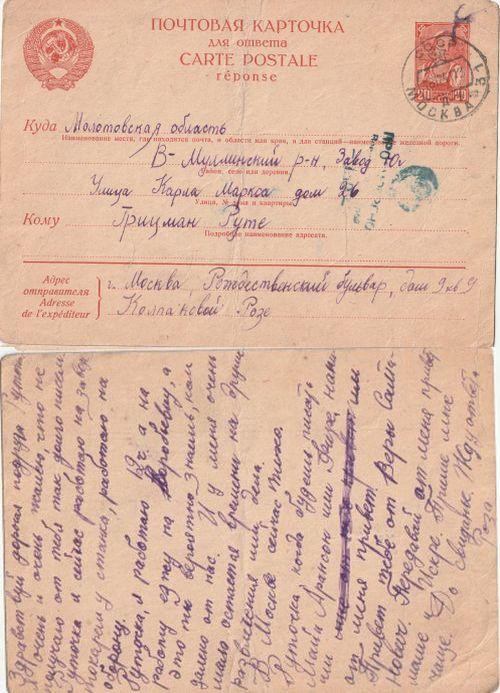 ПОЧТОВАЯ КАРТОЧКА
для ответа
CARTE POSTALE
- réponse
СССР
МОСКВА
20 20
Куда Молотовская область
Наименование места, где находится почта, и области или края, а для станций—наименование железной дороги.
В-Муллинский р-н, Завод 10г
Район, село или деревня.
Улица Карла Маркса дом 26
Улица, № дома и квартиры
Кому Грицман Руте
Подробное наименование адресата.
Адрес отправителя
Adresse de l'expéditeur
г. Москва, Рождественский бульвар, дом 9 кв 9
Колпаковой Розе
Здравствуй дорогая подруга
Я очень и очень жалею, что не
получаю от тебя так долго писем
Руточка я сейчас работаю на
токарем у станка, работаю на
оборону.
Руточка, я работаю 12 ч. а на
работу езжу на Воробьевку, а
это ты вероятно знаешь, как
далеко от нас. И у меня очень
мало остается времени на другие
развлечения или дела.
В Москве сейчас тихо.
Руточка, когда будешь писать
Майя Аронсон или напи
ши им
от меня привет.
Привет тебе от Веры Самой-
лович. Передавай от меня привет
маме Искре. Пиши мне
чаще. До свиданье. Жду ответ.
Роза